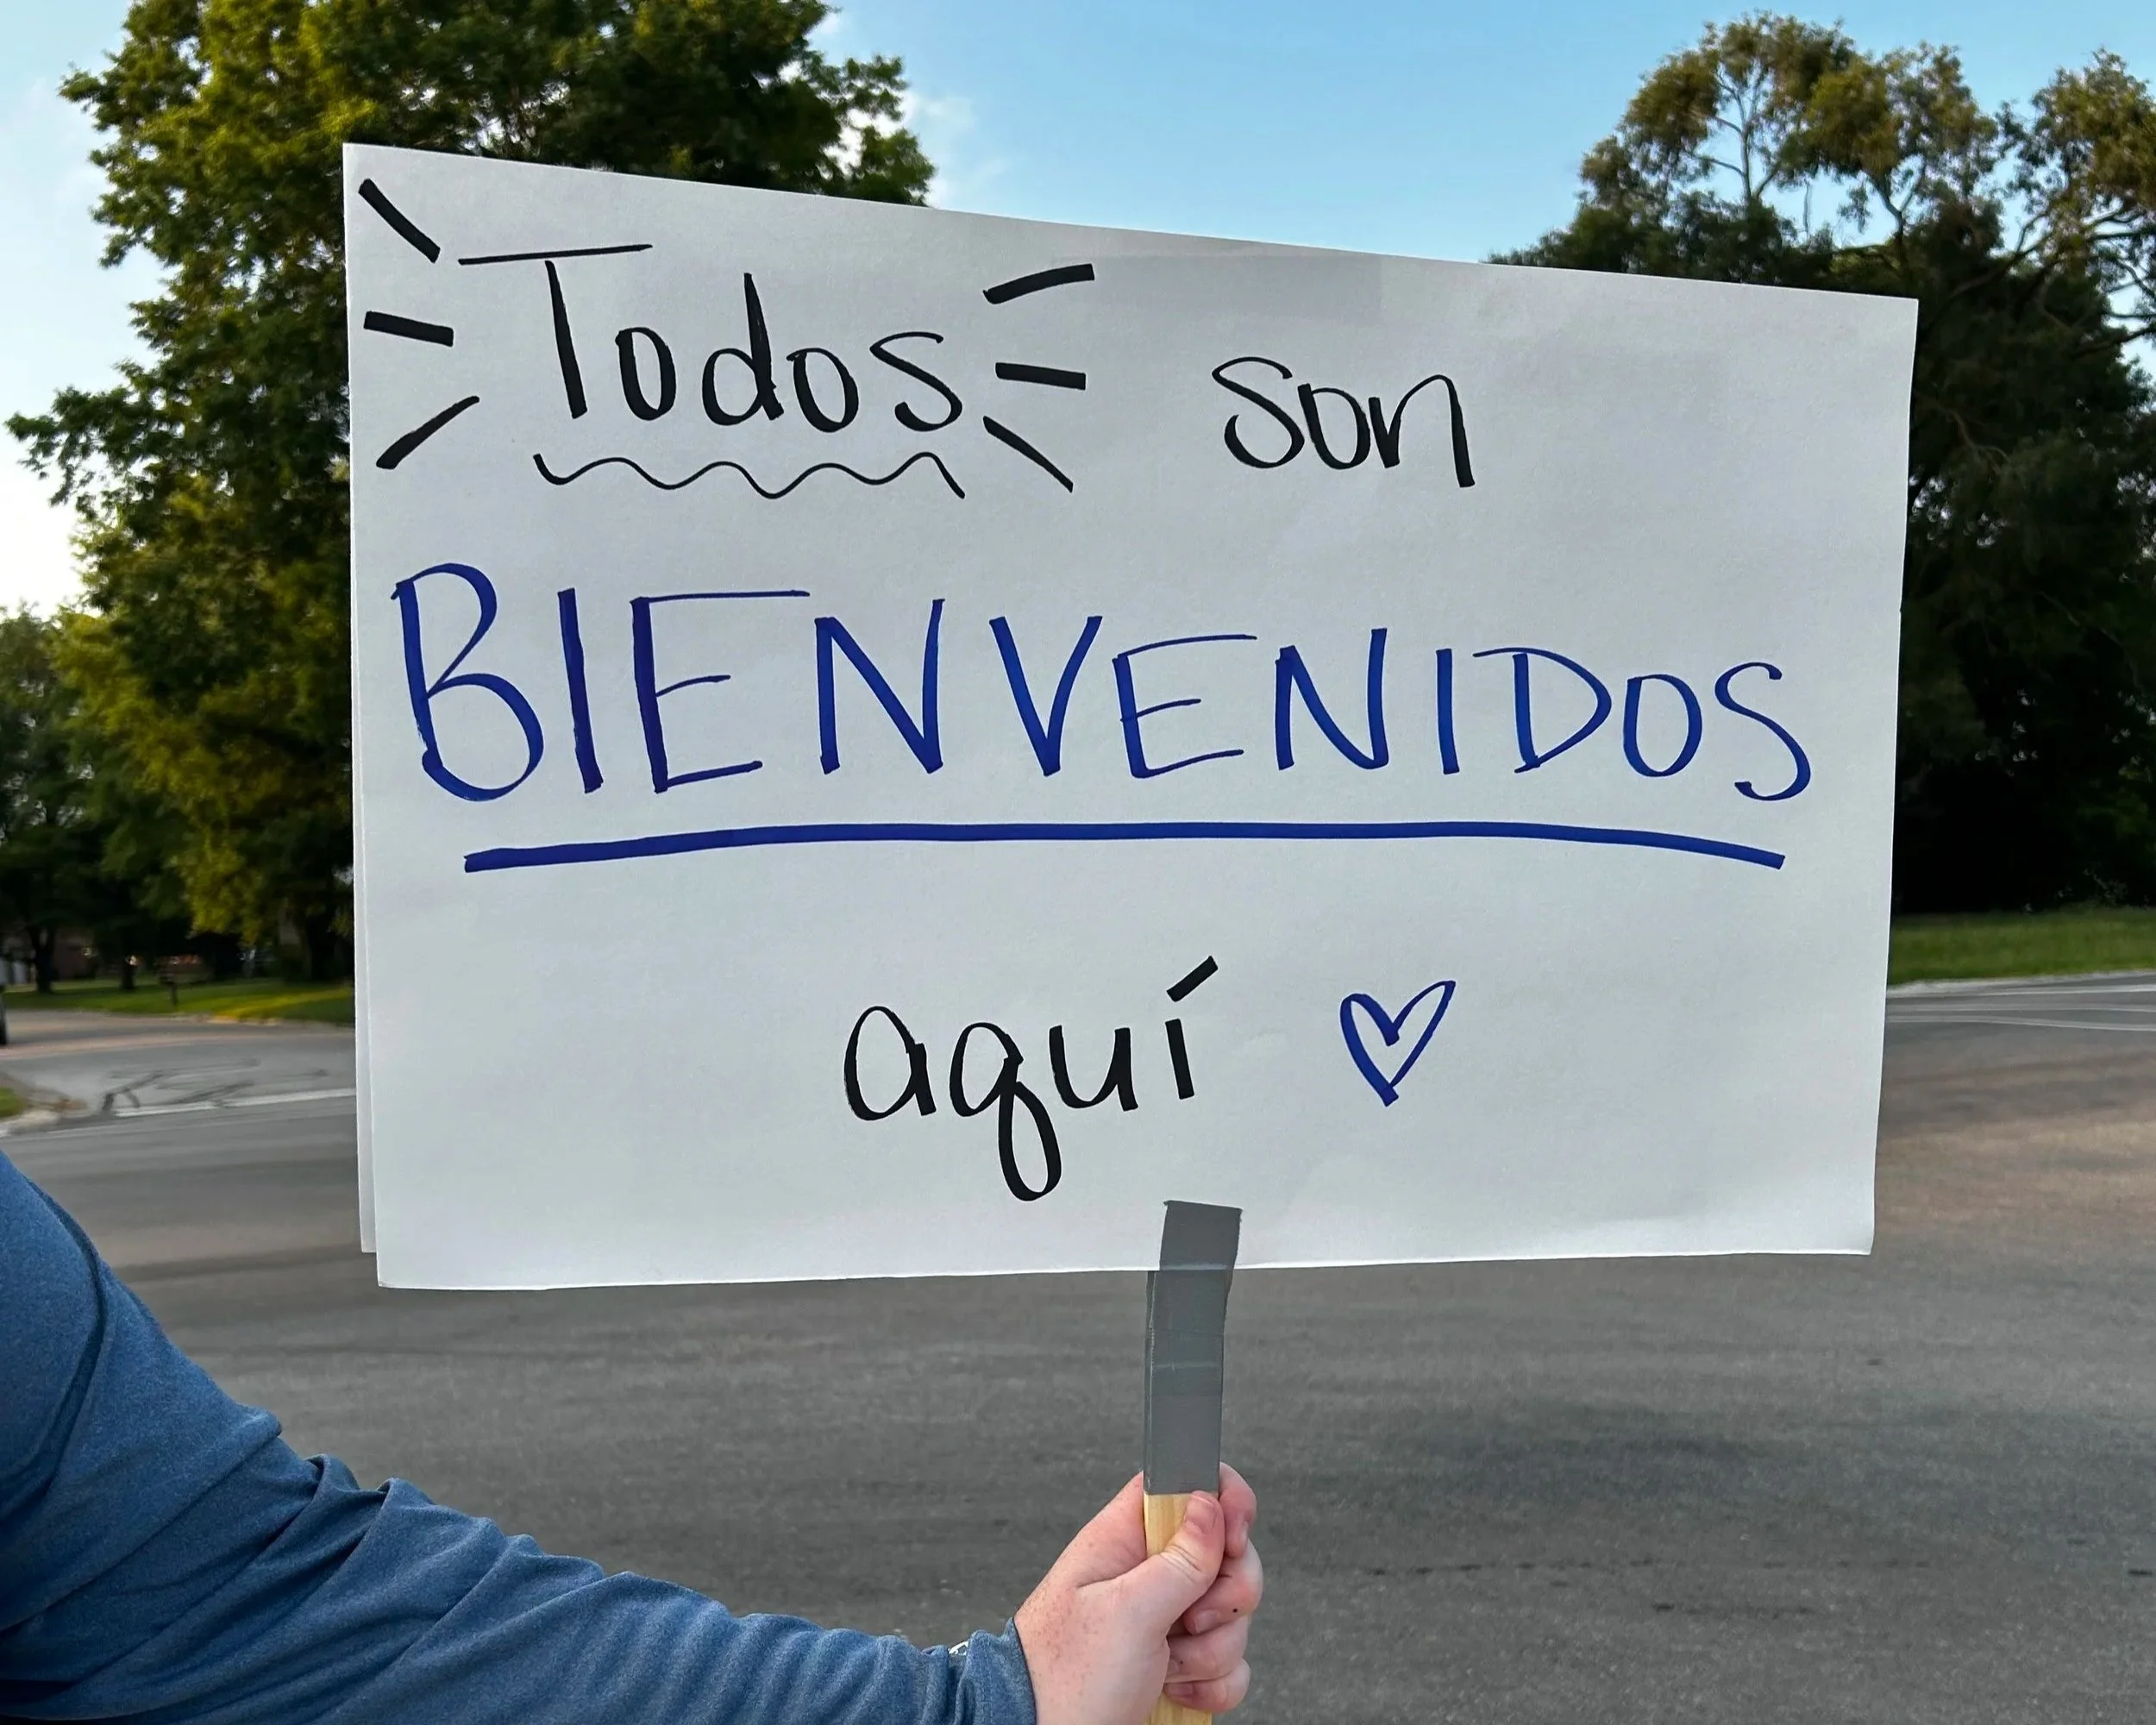 Todos son
BIENVENIDOS
aquí